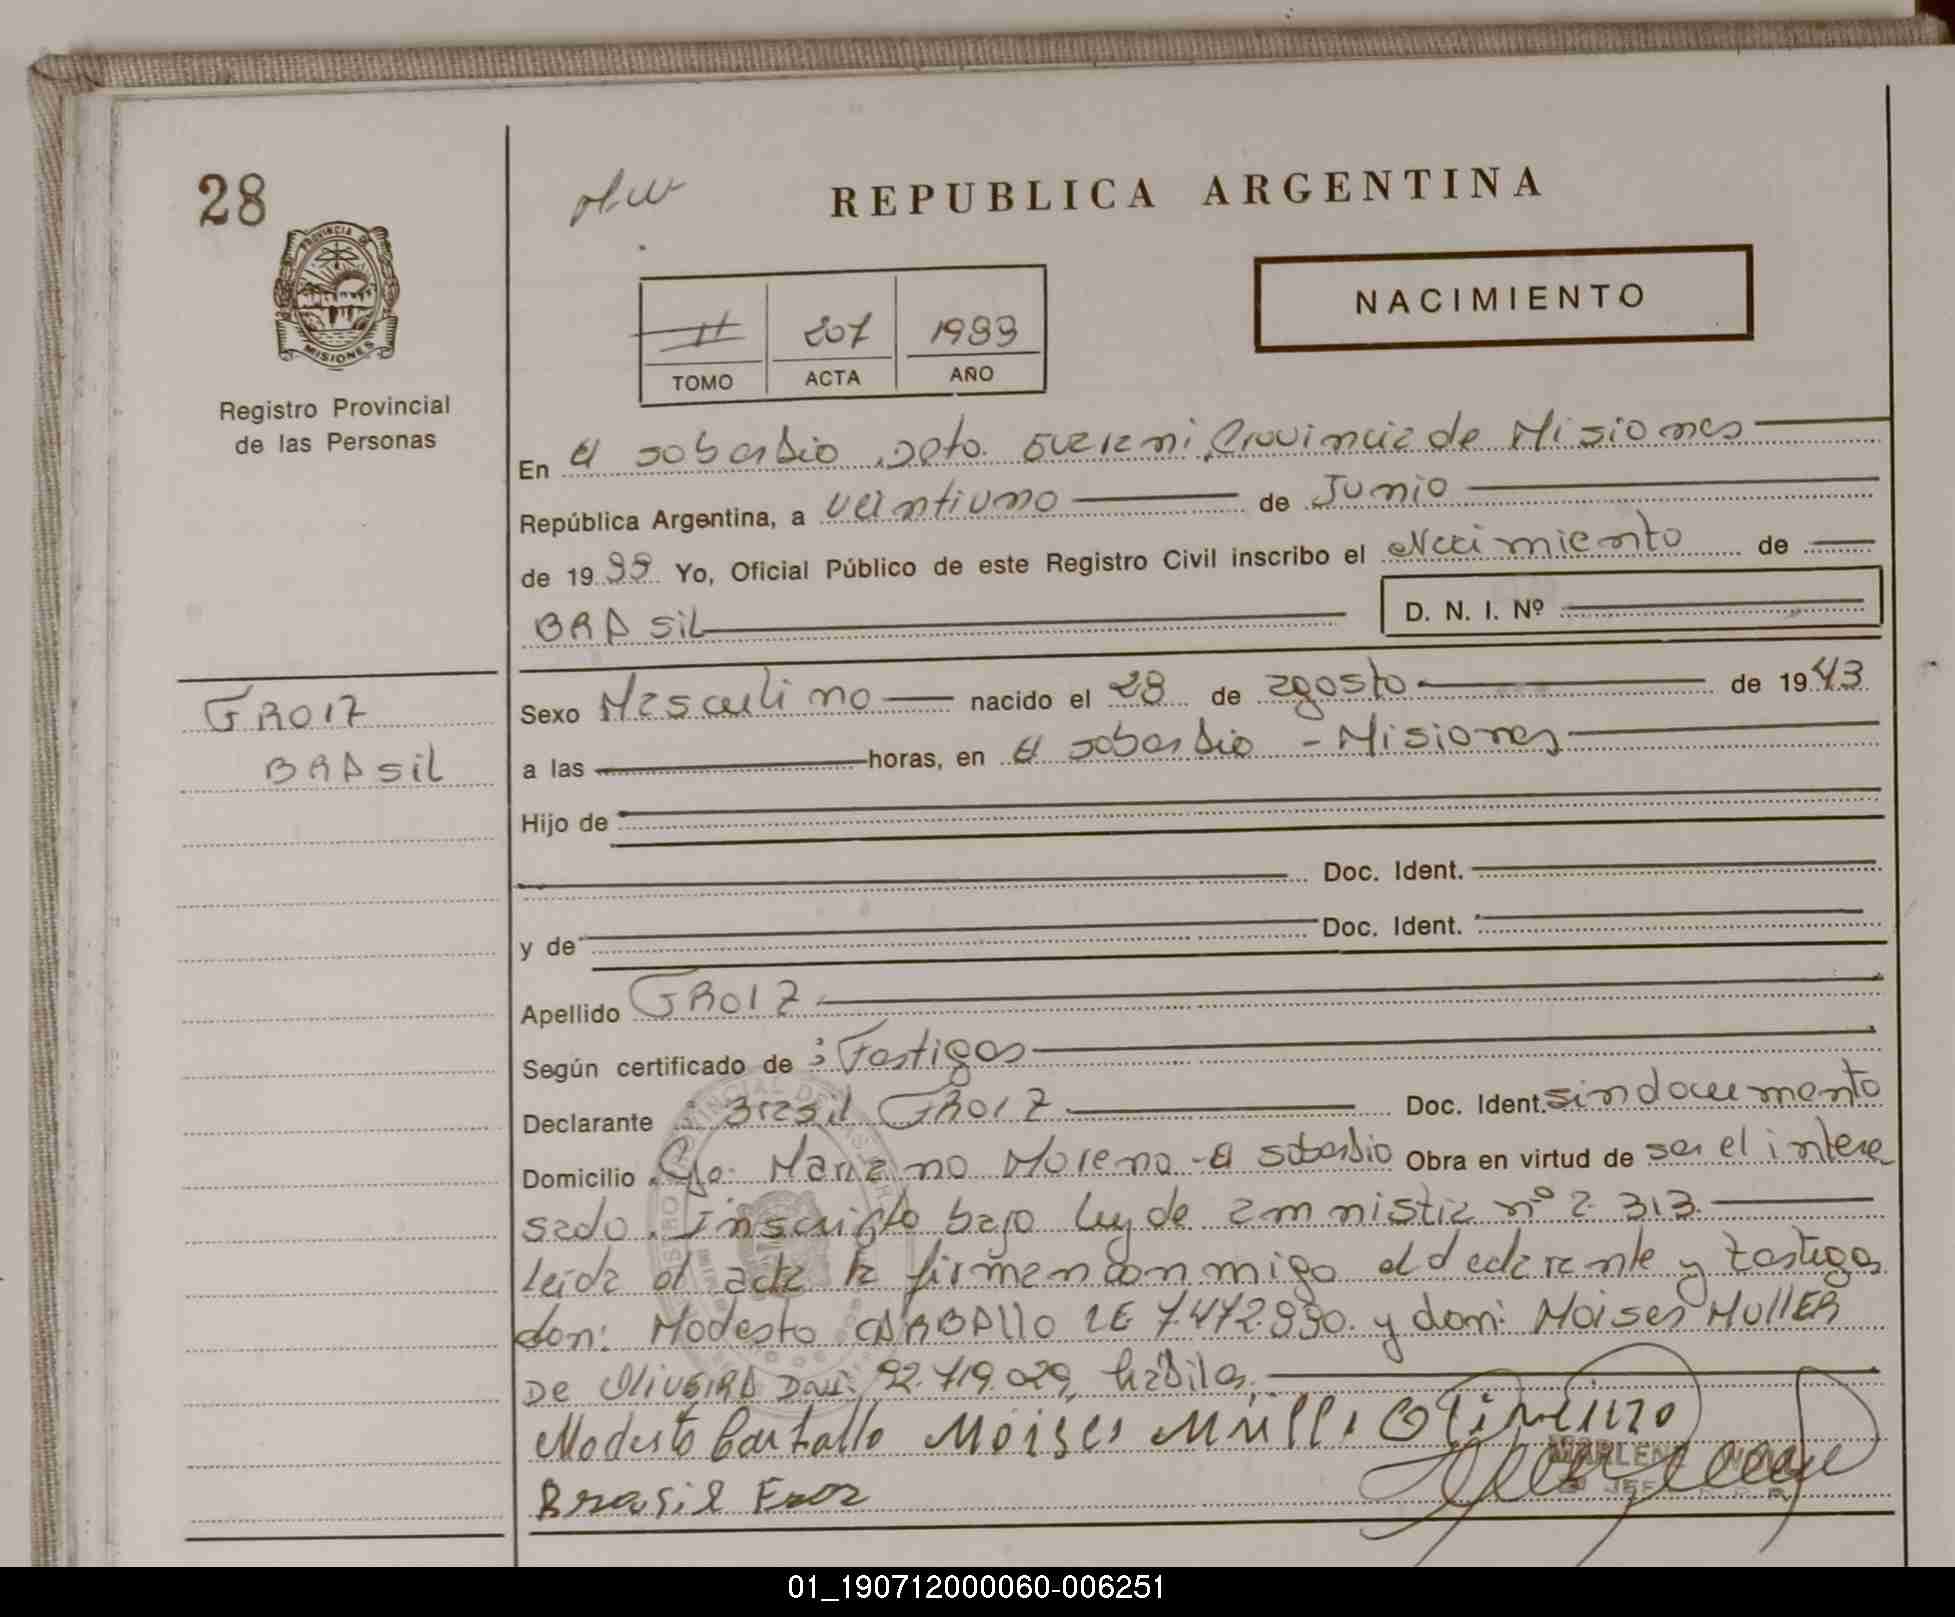 28
REPUBLICA ARGENTINA
PROVINCIA DE
MISIONES
Registro Provincial
de las Personas
207 1999
TOMO ACTA AÑO
NACIMIENTO
En El soberbio, Dpto. Guarani, Provincia de Misiones
República Argentina, a veintiuno de Junio
de 1999 Yo, Oficial Público de este Registro Civil inscribo el Nacimiento de
BRASiL D. N. I. Nº
GROIZ
BRASiL
Sexo Masculino nacido el 28 de agosto de 1943
a las horas, en El soberbio - Misiones
Hijo de
Doc. Ident.
y de Doc. Ident.
Apellido GROIZ
Según certificado de : Testigos
Declarante : Brasil GROIZ Doc. Ident. sin documento
Domicilio Gdo. Mariano Moreno - El soberbio Obra en virtud de ser el intere
sado. Inscripto bajo ley de amnistia nº 2.313.
Leida el acta la firman conmigo el declarante y testigos
don: Modesto CARBALLO LE 7.472.990. y don: Moises MULLER
DE OLIVEIRA DNI: 92.719.029, habiles.
Modesto Carballo Moises Mulle Oliveira
Brasil
MARLENE
JEFE
01_190712000060-006251